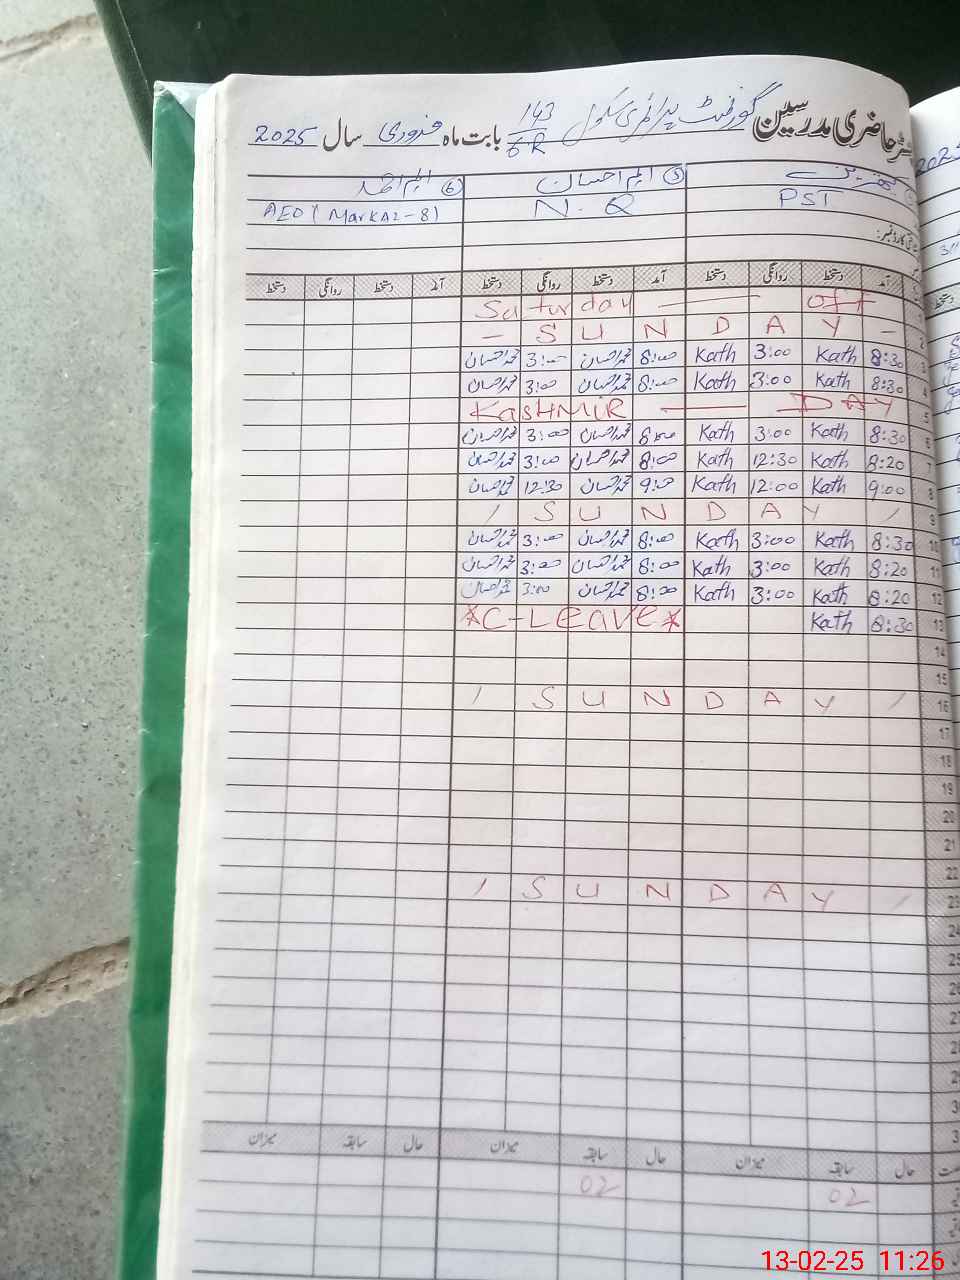 رجسٹر حاضری مدرسین گورنمنٹ پرائمری سکول 143/6R بابت ماہ فروری سال 2025
⑤ ایم احسان ⑥
PST N.Q AEO (Markaz-8)
آمد دستخط روانگی دستخط آمد دستخط روانگی دستخط آمد دستخط روانگی دستخط
1 Saturday off
2 – S U N D A Y –
3 8:30 Kath 3:00 Kath 8:00 محمد احسان 3:00 محمد احسان
4 8:30 Kath 3:00 Kath 8:00 محمد احسان 3:00 محمد احسان
5 KasHMIR DAY
6 8:30 Kath 3:00 Kath 8:00 محمد احسان 3:00 محمد احسان
7 8:20 Kath 12:30 Kath 8:00 محمد احسان 3:00 محمد احسان
8 9:00 Kath 12:00 Kath 9:00 محمد احسان 12:30 محمد احسان
9 / S U N D A Y /
10 8:30 Kath 3:00 Kath 8:00 محمد احسان 3:00 محمد احسان
11 8:20 Kath 3:00 Kath 8:00 محمد احسان 3:00 محمد احسان
12 8:20 Kath 3:00 Kath 8:00 محمد احسان 3:00 محمد احسان
13 8:30 Kath *C-Leave*
14
15
16 / S U N D A Y /
17
18
19
20
21
22
23 / S U N D A Y /
24
25
26
27
28
29
30
حال سابقہ میزان حال سابقہ میزان حال سابقہ میزان
02 02
13-02-25 11:26